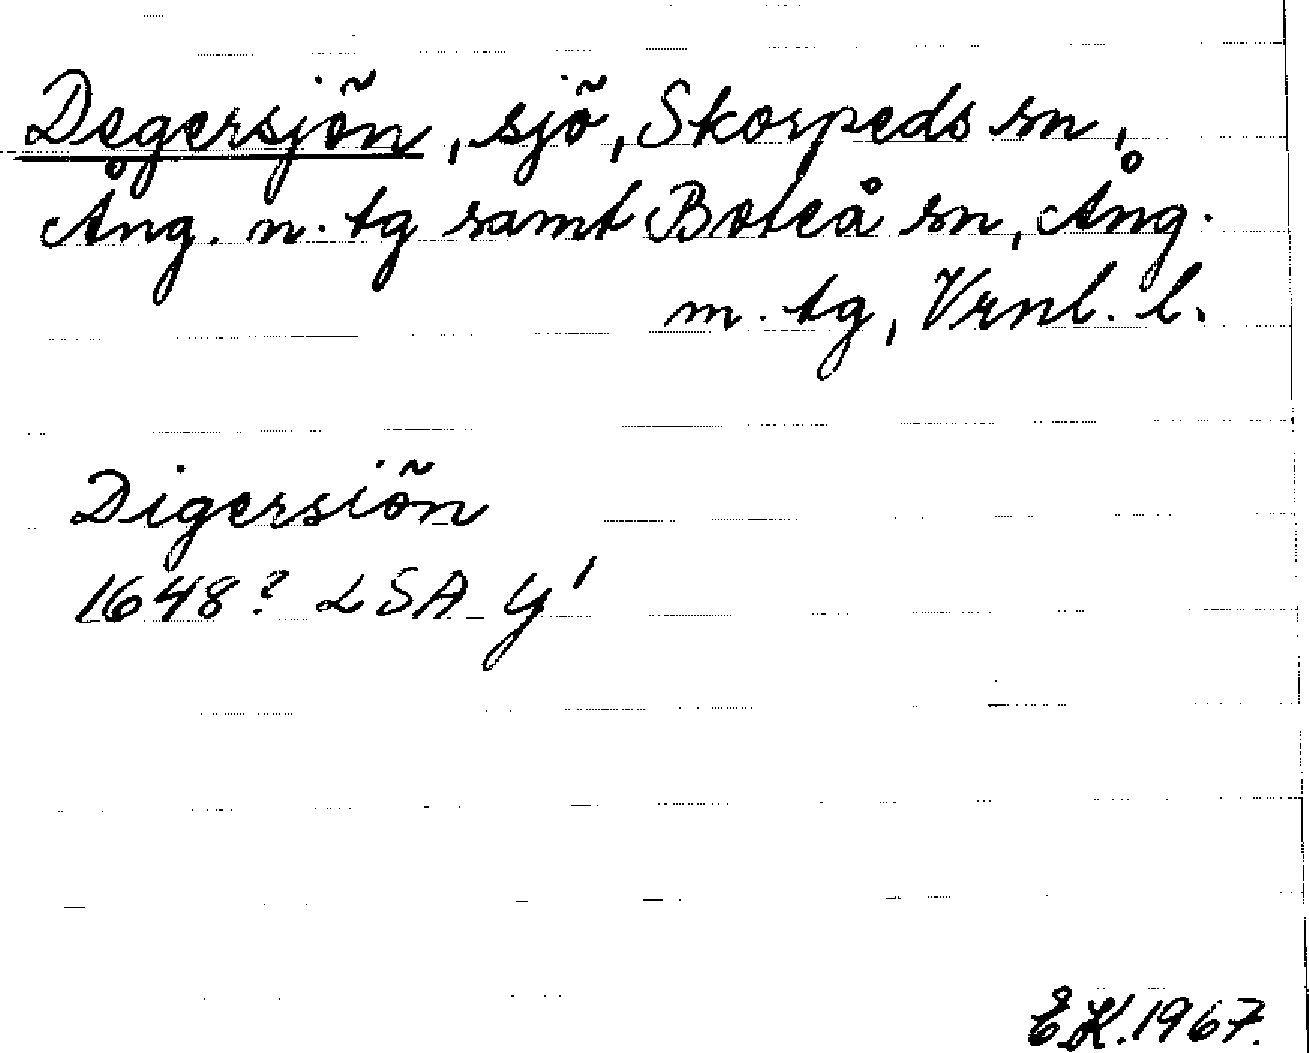 Degersjön, sjö, Skorpeds sn,
Ång. n. tg samt Boteå sn, Ång.
m. tg, Vrnl. l.
Digersiön
1648? LSA Y¹
EK. 1967.